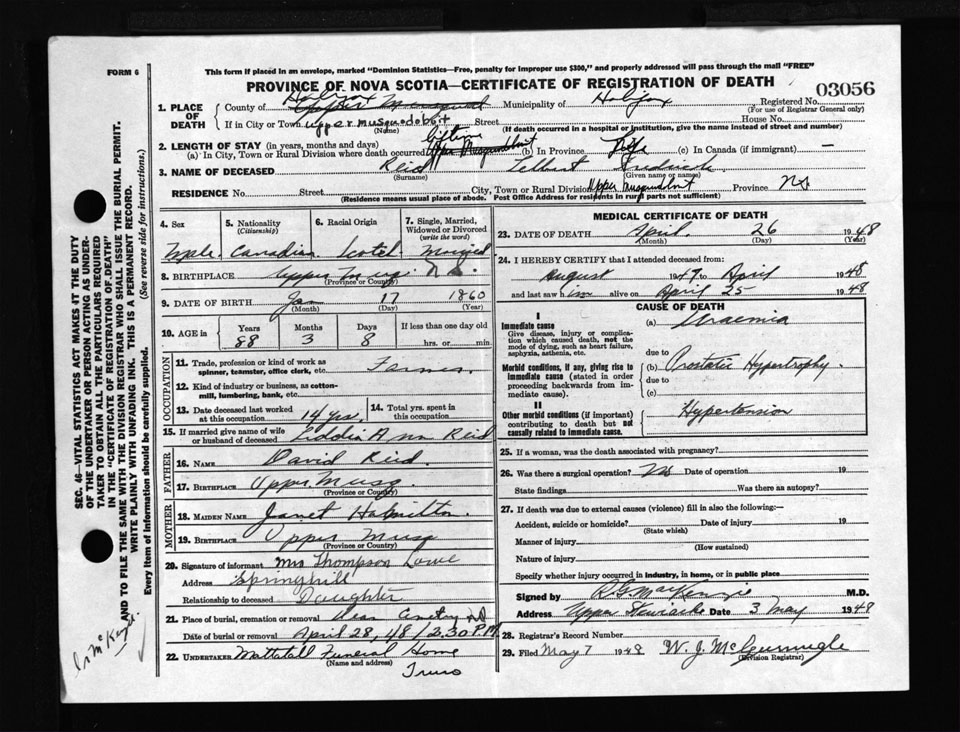 FORM 6
This form if placed in an envelope, marked "Dominion Statistics—Free, penalty for improper use $300," and properly addressed will pass through the mail "FREE"
PROVINCE OF NOVA SCOTIA—CERTIFICATE OF REGISTRATION OF DEATH
03056
1. PLACE OF DEATH
County of Halifax Municipality of Halifax Registered No.
(For use of Registrar General only)
If in City or Town upper musquodoboit Street House No.
(Name) (If death occurred in a hospital or institution, give the name instead of street and number)
2. LENGTH OF STAY (in years, months and days) Lifetime
(a) In City, Town or Rural Division where death occurred (b) In Province Life (c) In Canada (if immigrant) —
3. NAME OF DECEASED Reid
(Surname) (Given name or names)
RESIDENCE No. Street City, Town or Rural Division Province NS
(Residence means usual place of abode. Post Office Address for residents in rural parts not sufficient)
4. Sex 5. Nationality (Citizenship) 6. Racial Origin 7. Single, Married, Widowed or Divorced (write the word)
Male Canadian Scotch Married
8. BIRTHPLACE Upper Musq. N.S.
(Province or County)
9. DATE OF BIRTH Jan 17 1860
(Month) (Day) (Year)
10. AGE in Years Months Days If less than one day old
88 3 8 hrs. or min.
OCCUPATION
11. Trade, profession or kind of work as spinner, teamster, office clerk, etc. Farmer
12. Kind of industry or business, as cotton-mill, lumbering, bank, etc.
13. Date deceased last worked at this occupation 14 yrs. 14. Total yrs. spent in this occupation
15. If married give name of wife or husband of deceased Liddia Ann Reid
FATHER
16. NAME David Reid.
17. BIRTHPLACE Upper Musq.
(Province or County)
MOTHER
18. MAIDEN NAME Janet Hamilton
19. BIRTHPLACE Upper Musq
(Province or County)
20. Signature of informant Mrs Thompson Lowe
Address Springhill
Relationship to deceased Daughter
21. Place of burial, cremation or removal
Date of burial or removal April 28, 48 / 2.30 P.M.
22. UNDERTAKER Mattatall Funeral Home
(Name and address)
Truro
MEDICAL CERTIFICATE OF DEATH
23. DATE OF DEATH April 26 1948
(Month) (Day) (Year)
24. I HEREBY CERTIFY that I attended deceased from:
August 1947 to April 1948
and last saw him alive on April 25 1948
CAUSE OF DEATH
I
Immediate cause (a) Uraemia
Give disease, injury or complication which caused death, not the mode of dying, such as heart failure, asphyxia, asthenia, etc.
due to
Morbid conditions, if any, giving rise to immediate cause (stated in order proceeding backwards from immediate cause). (b) Prostatic Hypertrophy.
due to
(c)
II
Other morbid conditions (if important) contributing to death but not causally related to immediate cause. Hypertension
25. If a woman, was the death associated with pregnancy?
26. Was there a surgical operation? No Date of operation 19
State findings Was there an autopsy?
27. If death was due to external causes (violence) fill in also the following:—
Accident, suicide or homicide? Date of injury 19
(State which)
Manner of injury
(How sustained)
Nature of injury
Specify whether injury occurred in industry, in home, or in public place
Signed by R G MacKenzie M.D.
Address Upper Stewiacke Date 3 May 1948
28. Registrar's Record Number
29. Filed May 7 1948
(Division Registrar)
SEC. 46—VITAL STATISTICS ACT MAKES IT THE DUTY
OF THE UNDERTAKER OR PERSON ACTING AS UNDER-
TAKER TO OBTAIN ALL THE PARTICULARS REQUIRED
IN THE "CERTIFICATE OF REGISTRATION OF DEATH"
AND TO FILE THE SAME WITH THE DIVISION REGISTRAR WHO SHALL ISSUE THE BURIAL PERMIT.
WRITE PLAINLY WITH UNFADING INK. THIS IS A PERMANENT RECORD.
Every item of Information should be carefully supplied. (See reverse side for instructions.)